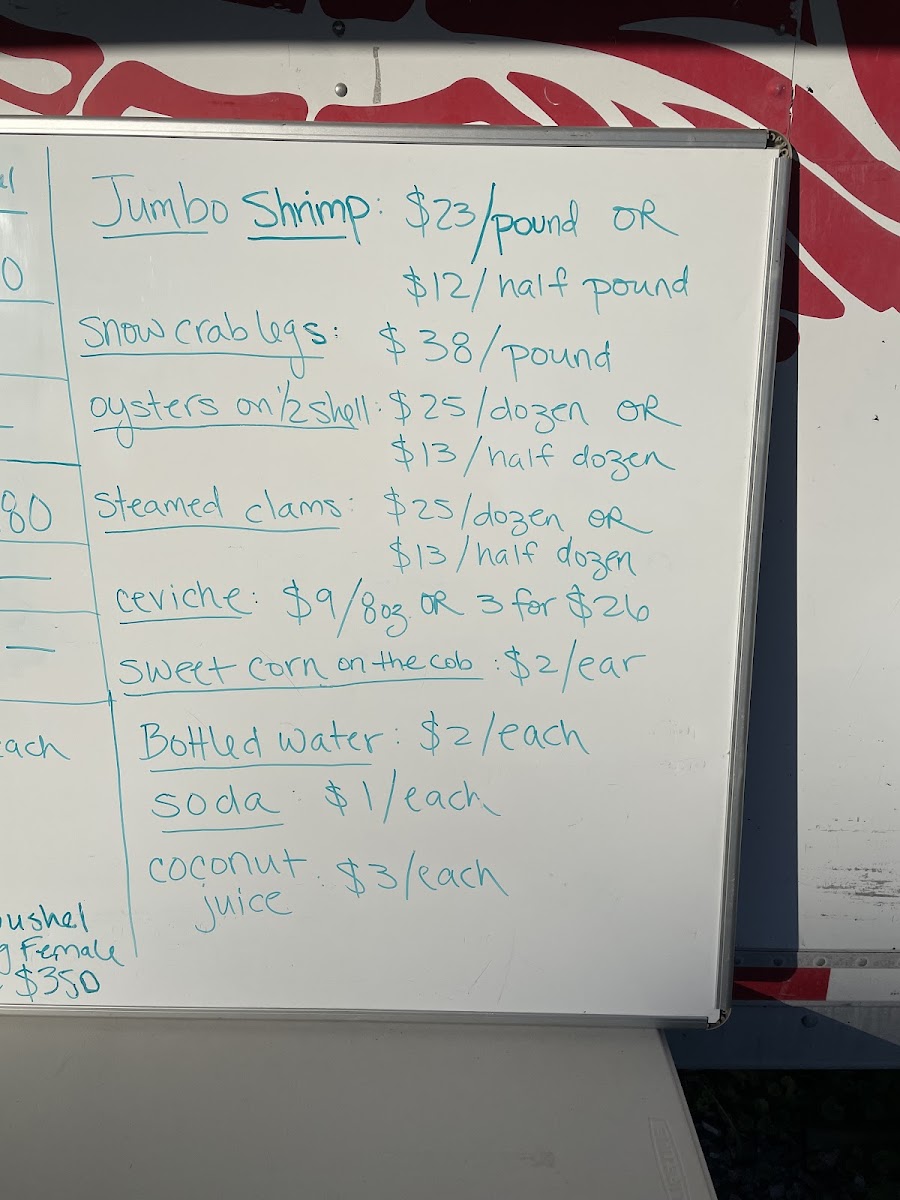 Jumbo Shrimp: $23/pound OR
$12/half pound
Snow crab legs: $38/pound
oysters on 1/2 shell: $25/dozen OR
$13/half dozen
Steamed clams: $25/dozen OR
$13/half dozen
ceviche: $9/8oz. OR 3 for $26
sweet corn on the cob: $2/ear
Bottled water: $2/each
soda: $1/each
coconut juice: $3/each
80
each
bushel
Female
$350